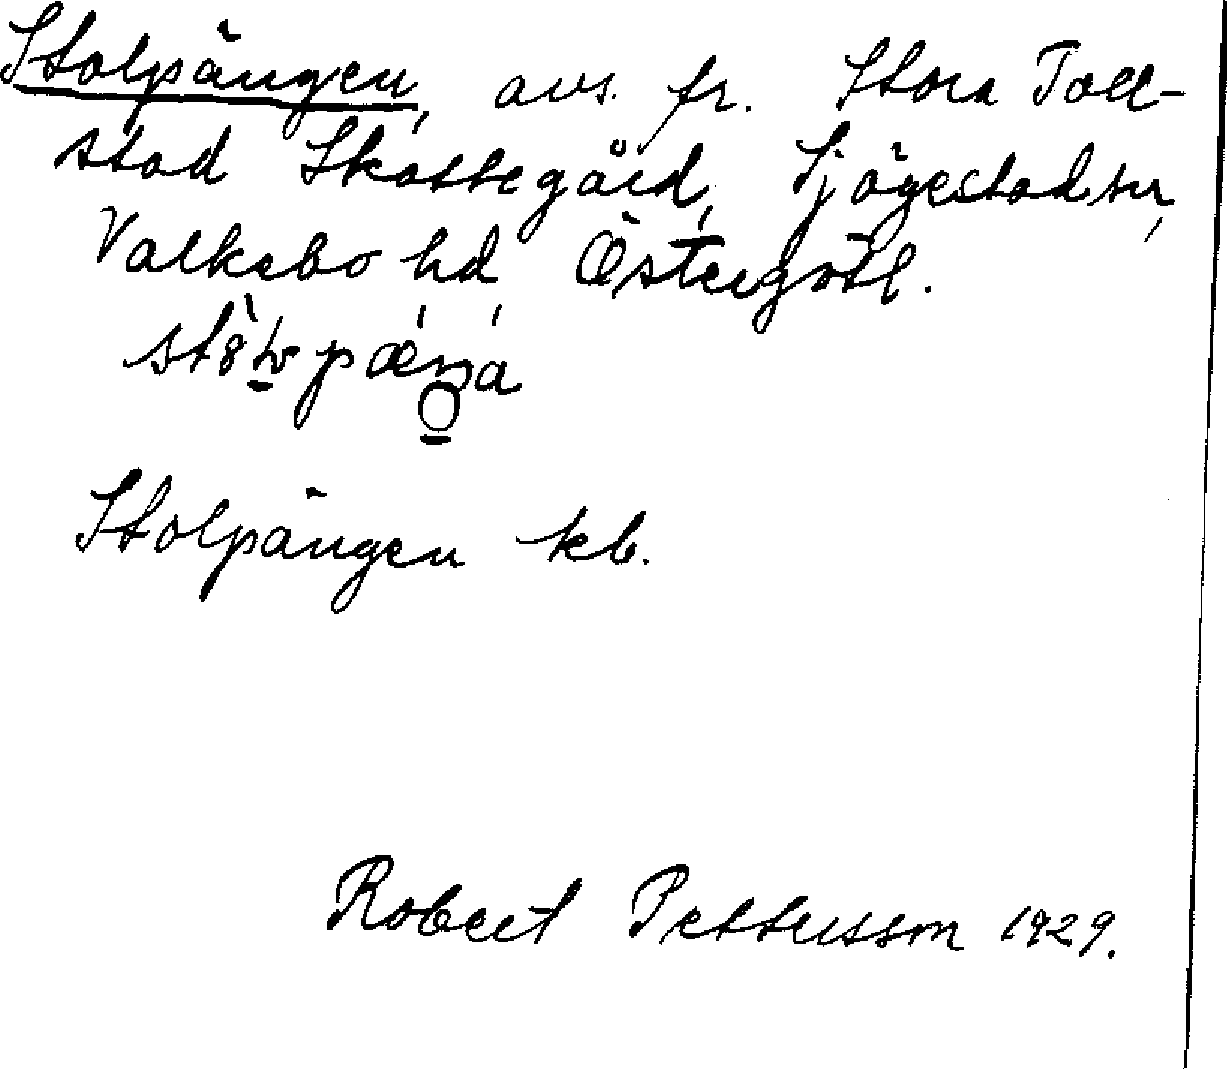 Stolpängen, avs. fr. Stora Toll-
stad Skattegård, Sjögestad sn,
Valkebo hd, Östergötl.
Stolpängen kb.
Robert Pettersson 1929.